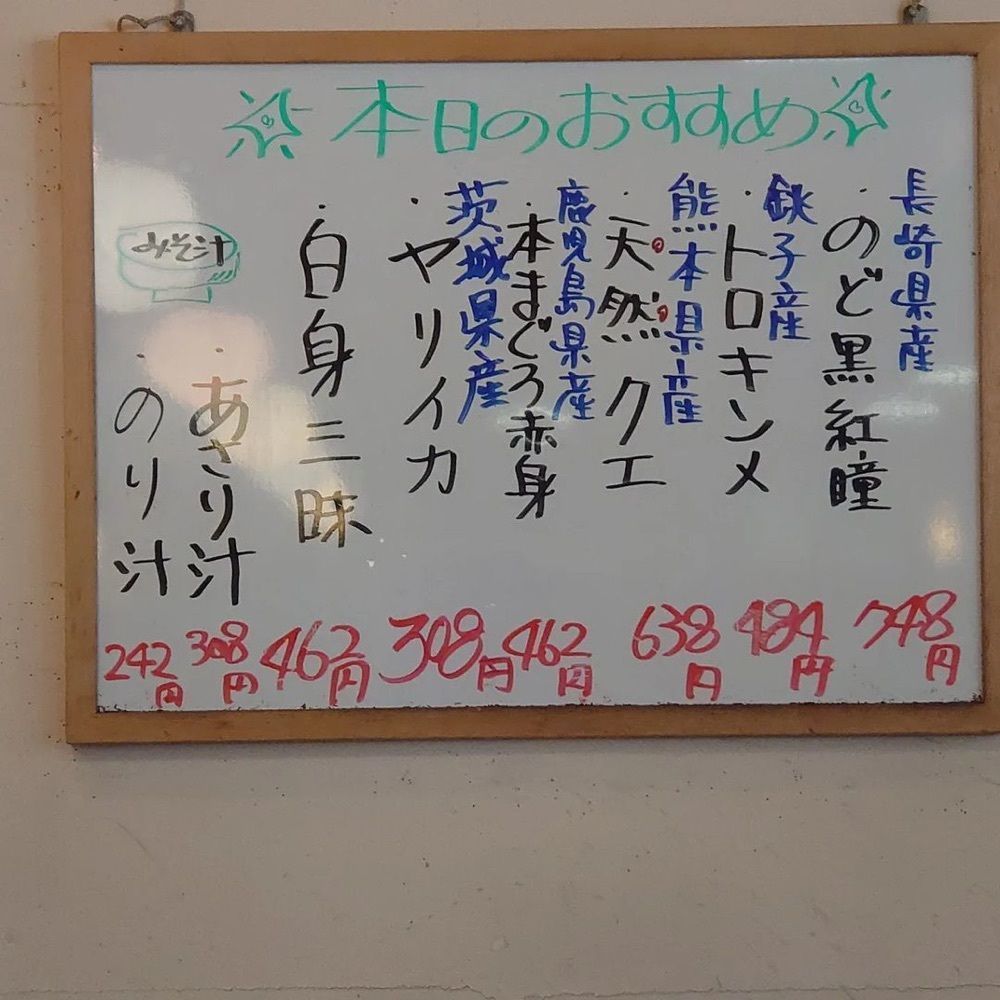 本日のおすすめ
長崎県産
のど黒紅瞳
748円
銚子産
トロキンメ
484円
熊本県産
天然クエ
638円
鹿児島県産
本まぐろ赤身
462円
茨城県産
ヤリイカ
308円
白身三昧
462円
みそ汁
あさり汁
308円
のり汁
242円